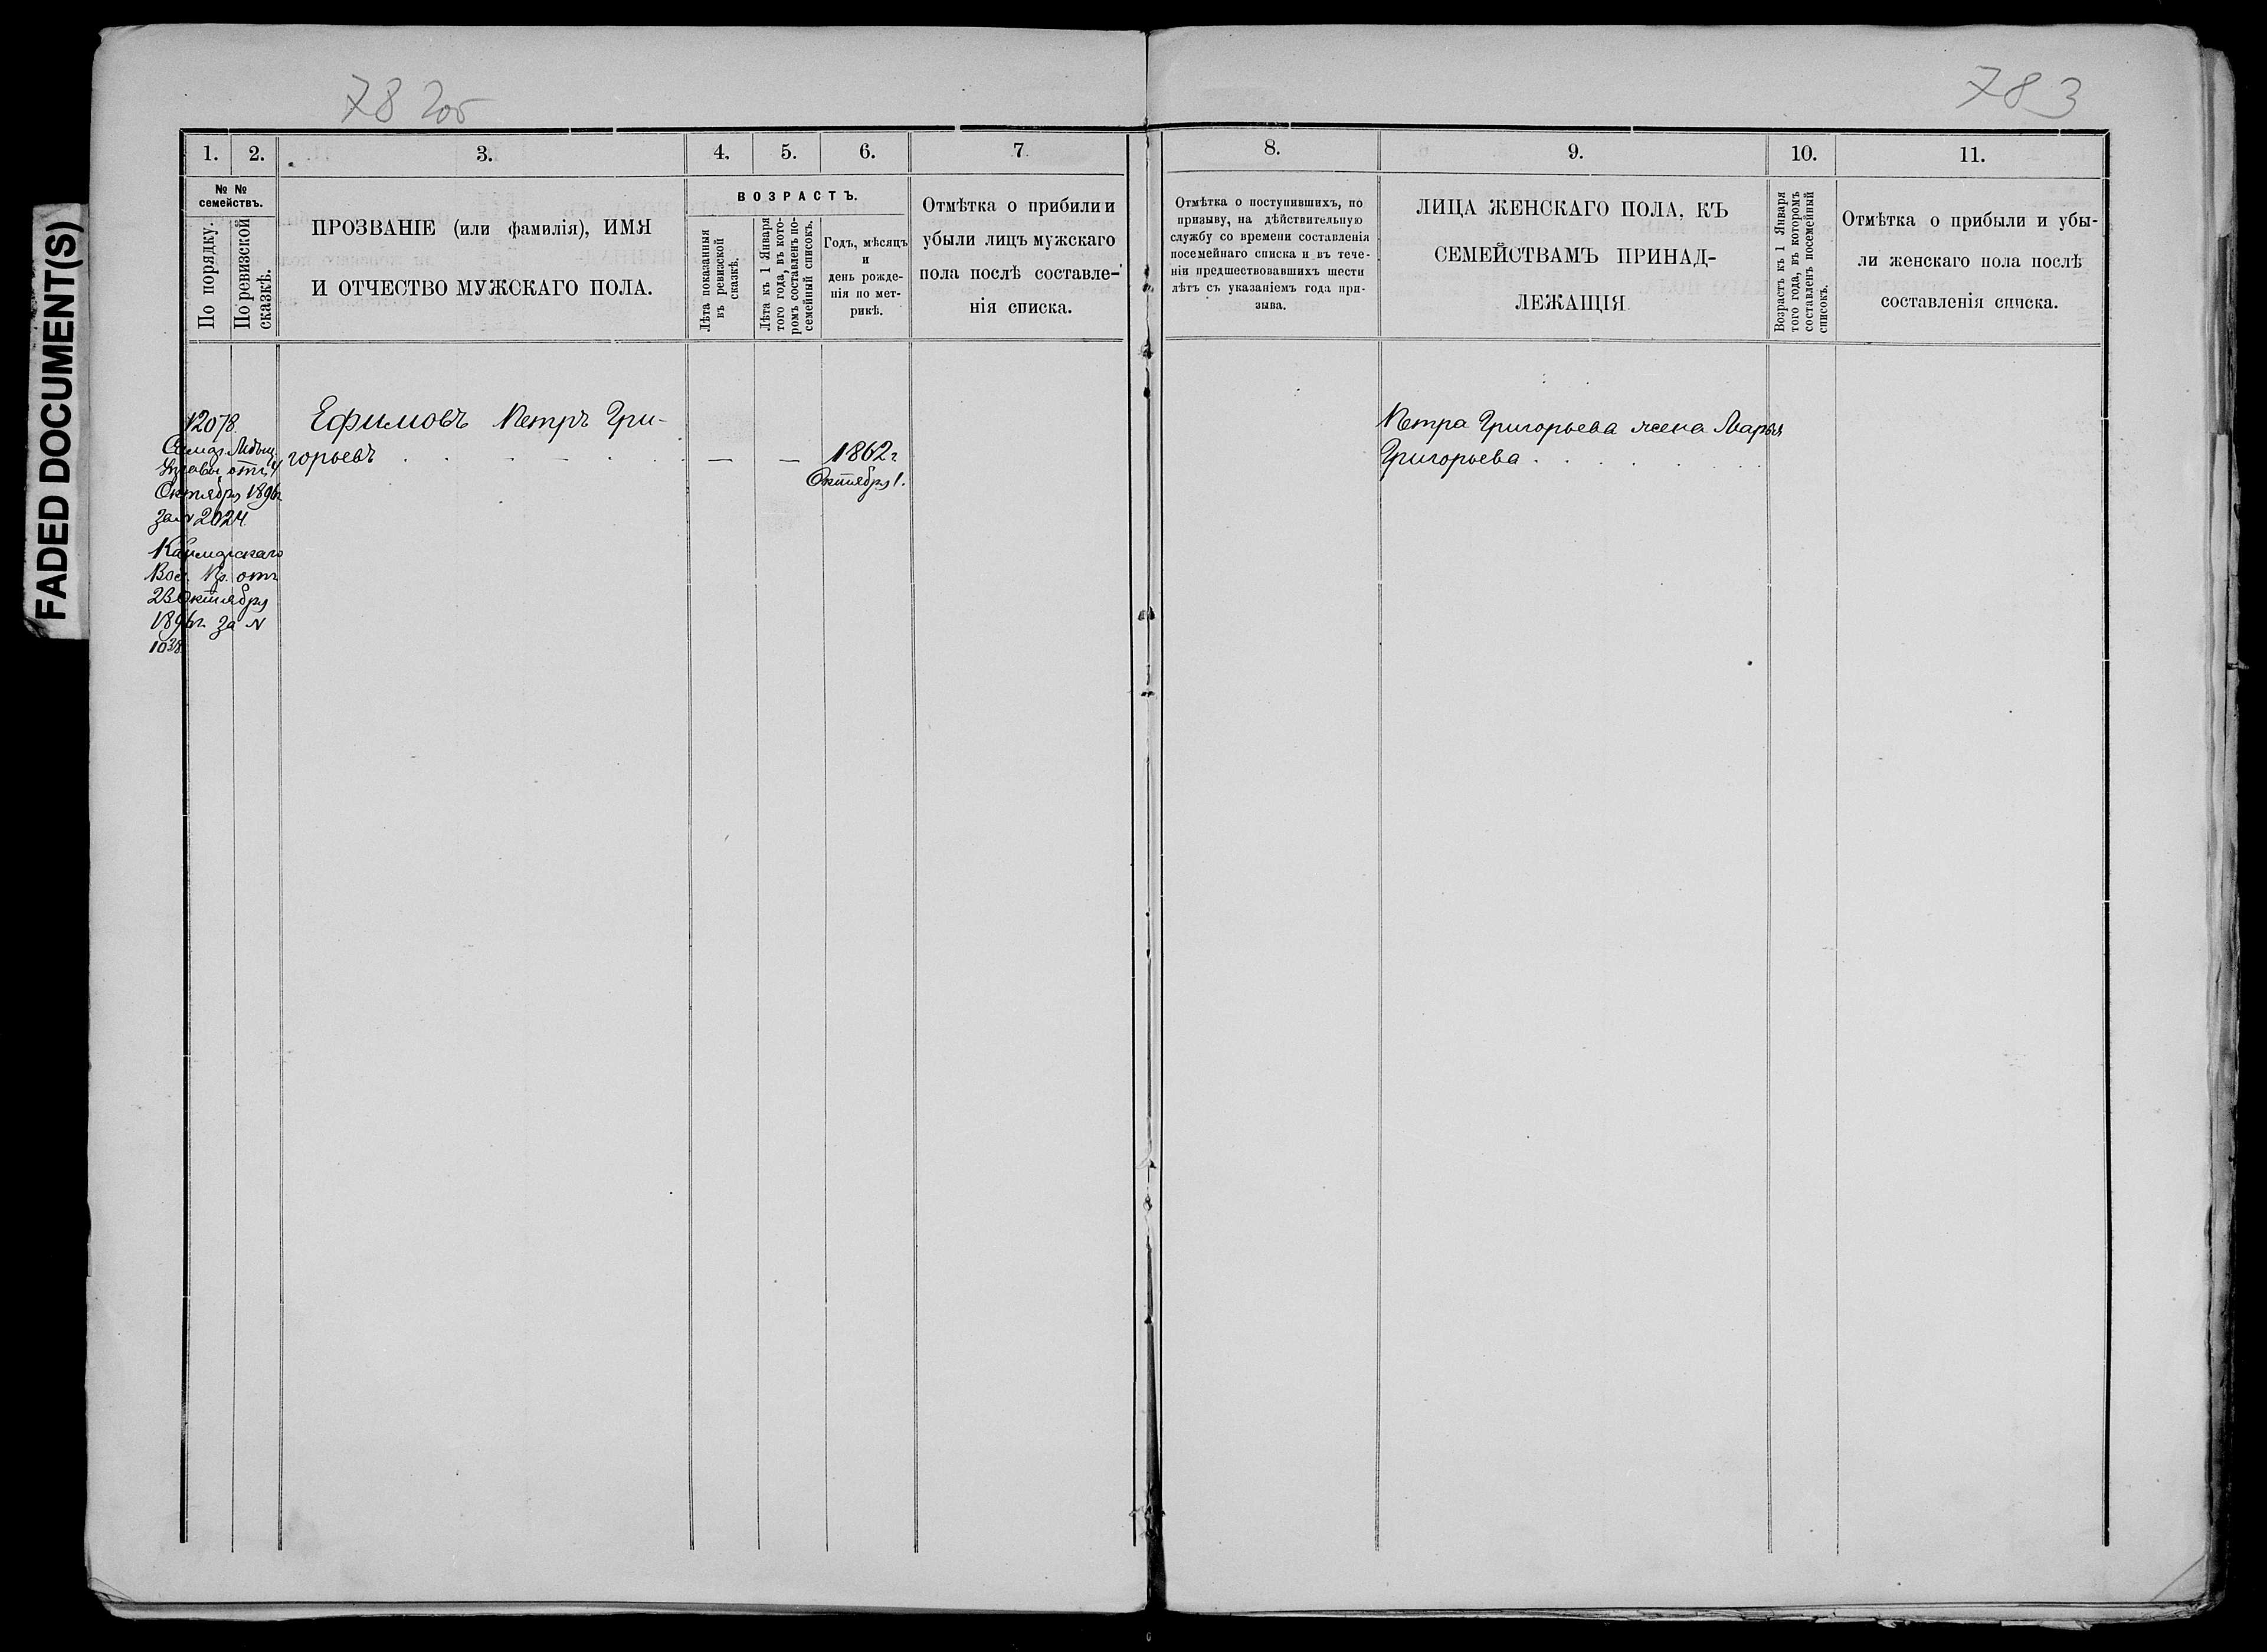 FADED DOCUMENT(S)
782об
783
1. 2. 3. 4. 5. 6. 7
№ №
семействъ.
По порядку.
По ревизской
сказкѣ.
ПРОЗВАНІЕ (или фамилія), ИМЯ
И ОТЧЕСТВО МУЖСКАГО ПОЛА.
ВОЗРАСТЪ.
Лѣта показанныя
въ ревизской
сказкѣ.
Лѣта къ 1 Января
того года, въ кото-
ромъ составленъ по-
семейный списокъ.
Годъ, мѣсяцъ
и
день рожде-
нія по мет-
рикѣ.
Отмѣтка о прибыли и
убыли лицъ мужскаго
пола послѣ составле-
нія списка.
8. 9. 10. 11.
Отмѣтка о поступившихъ, по
призыву, на дѣйствительную
службу со времени составленія
посемейнаго списка и въ тече-
ніи предшествовавшихъ шести
лѣтъ съ указаніемъ года при-
зыва.
ЛИЦА ЖЕНСКАГО ПОЛА, КЪ
СЕМЕЙСТВАМЪ ПРИНАД-
ЛЕЖАЩІЯ
Возрастъ къ 1 Января
того года, въ которомъ
составленъ посемейный
списокъ.
Отмѣтка о прибыли и убы-
ли женскаго пола послѣ
составленія списка.
12078.
Самар. Мѣщ.
Управы отъ 4
Октября 1896г.
за № 2024
Вое. Пр. отъ
23 Октября
1896г. за №
1038.
Ефимовъ Петръ Гри-
горьевъ . . . . . . — — 1862г
Октября 1.
Петра Григорьева жена Марья
Григорьева . . . . . .